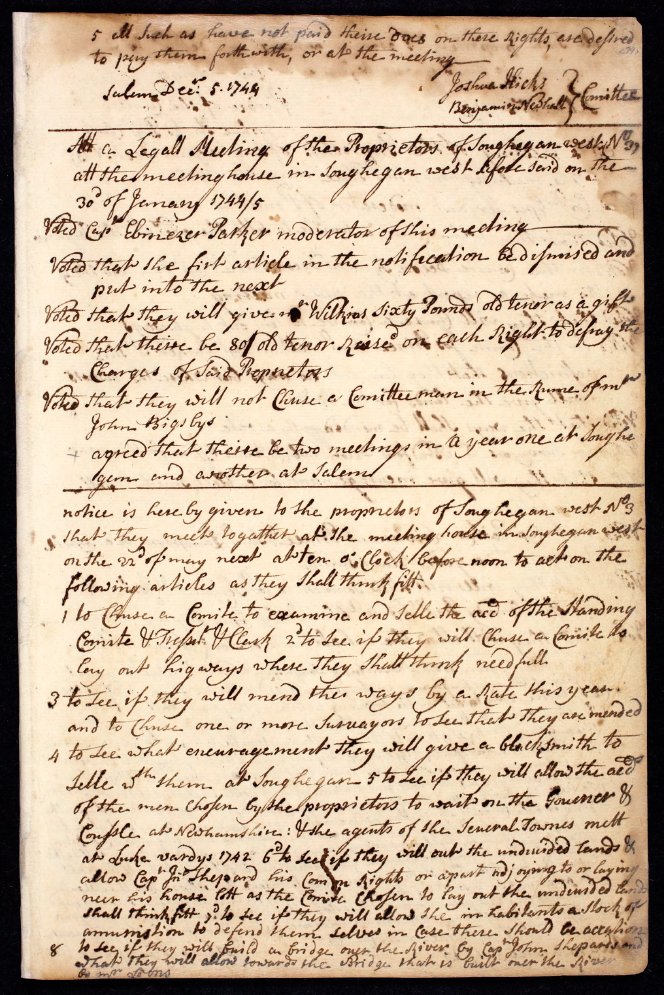 5 all such as have not paid theire Does on there Rights, are desired
to pay them forthwith, or at the meeting
Salem Decr. 5. 1744
Joshua Hicks
Benjamin Newhall } Comittee
Att a Legall Meeting of the Proprietors of Souhegan west No
att the meeting house in Souhegan west afore said on the
30d of January 1744/5
Voted Capt Ebinezer Parker moderator of this meeting
Voted that the first article in the notifecation be dismised and
put into the next
Voted that they will give mr Wilkins Sixty Pounds old tenor as a gift
Voted that theire be 80/ old tenor Raised on each Right to defray the
Charges of Said Proprietors
Voted that they will not Chuse a Comittee man in the Rume of mr
John Bigsbys
agreed that theire be two meetings in a year one at Souhe
gem and another at Salem
notice is here by given to the proprietors of Souhegan west No 3
that they meet togather at the meeting house in Souhegan west
on the 22d of may next at ten o Clock before noon to act on the
following articles as they Shall think fitt
1 to Chuse a Comite to examine and Selle the acd of the Standing
Comite & Tresr & Clark 2d to See if they will Chuse a Comite to
lay out higways where they Shall think needfull
3 to See if they will mend the ways by a Rate this year
and to Chuse one or more Survayors to See that they are mended
4 to See what encuragement they will give a blacksmith to
Selle wth them at Souhegan 5 to See if they will allow the acd
of the men Chosen by the proprietors to wait on the Gouener &
Counsle at Newhamshire: & the agents of the Several Townes mett
at Luke vardys 1742 6d to See if they will out the undivided Lands &
allow Capt Jn Shepard his Comon Rights or a part adjoyng to or laying
near his house Lott as the Comite Chosen to lay out the undivided Lands
Shall think fitt 7d to See if they will allow the inhabitants a Stock of
ammunistion to defend them Selves in Case there Should be accation
8 to See if they will build a bridge over the River by Capt John Shepards and
what they will allow towards the Bridge that is built over the River
by mr